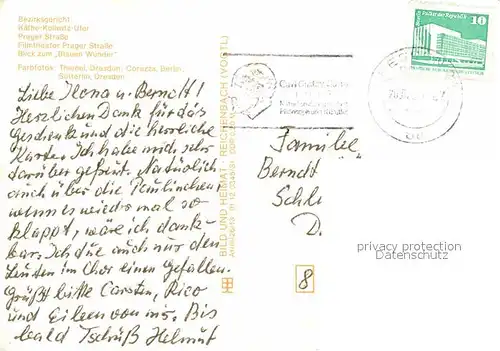 Bezirksgericht
Käthe-Kollwitz-Ufer
Prager Straße
Filmtheater Prager Straße
Blick zum "Blauen Wunder"
Farbfotos: Thienel, Dresden; Corazza, Berlin
Sütterlin, Dresden
BILD UND HEIMAT · REICHENBACH (VOGTL)
10
Liebe Ilona u. Berndt!
Herzlichen Dank für das
Geschenk und die herrliche
Karte. Ich habe mich sehr
darüber gefreut. Natürlich
auch über die
wenn es wieder mal so
klappt, wäre ich dank-
bar. Ich tue auch nur den
Leuten im Chor einen Gefallen.
Grüßt bitte Carsten, Rico
und Eileen von mir. Bis
bald Tschüß Helmut
Familie
Berndt
Schli
D.
8
privacy protection
Datenschutz